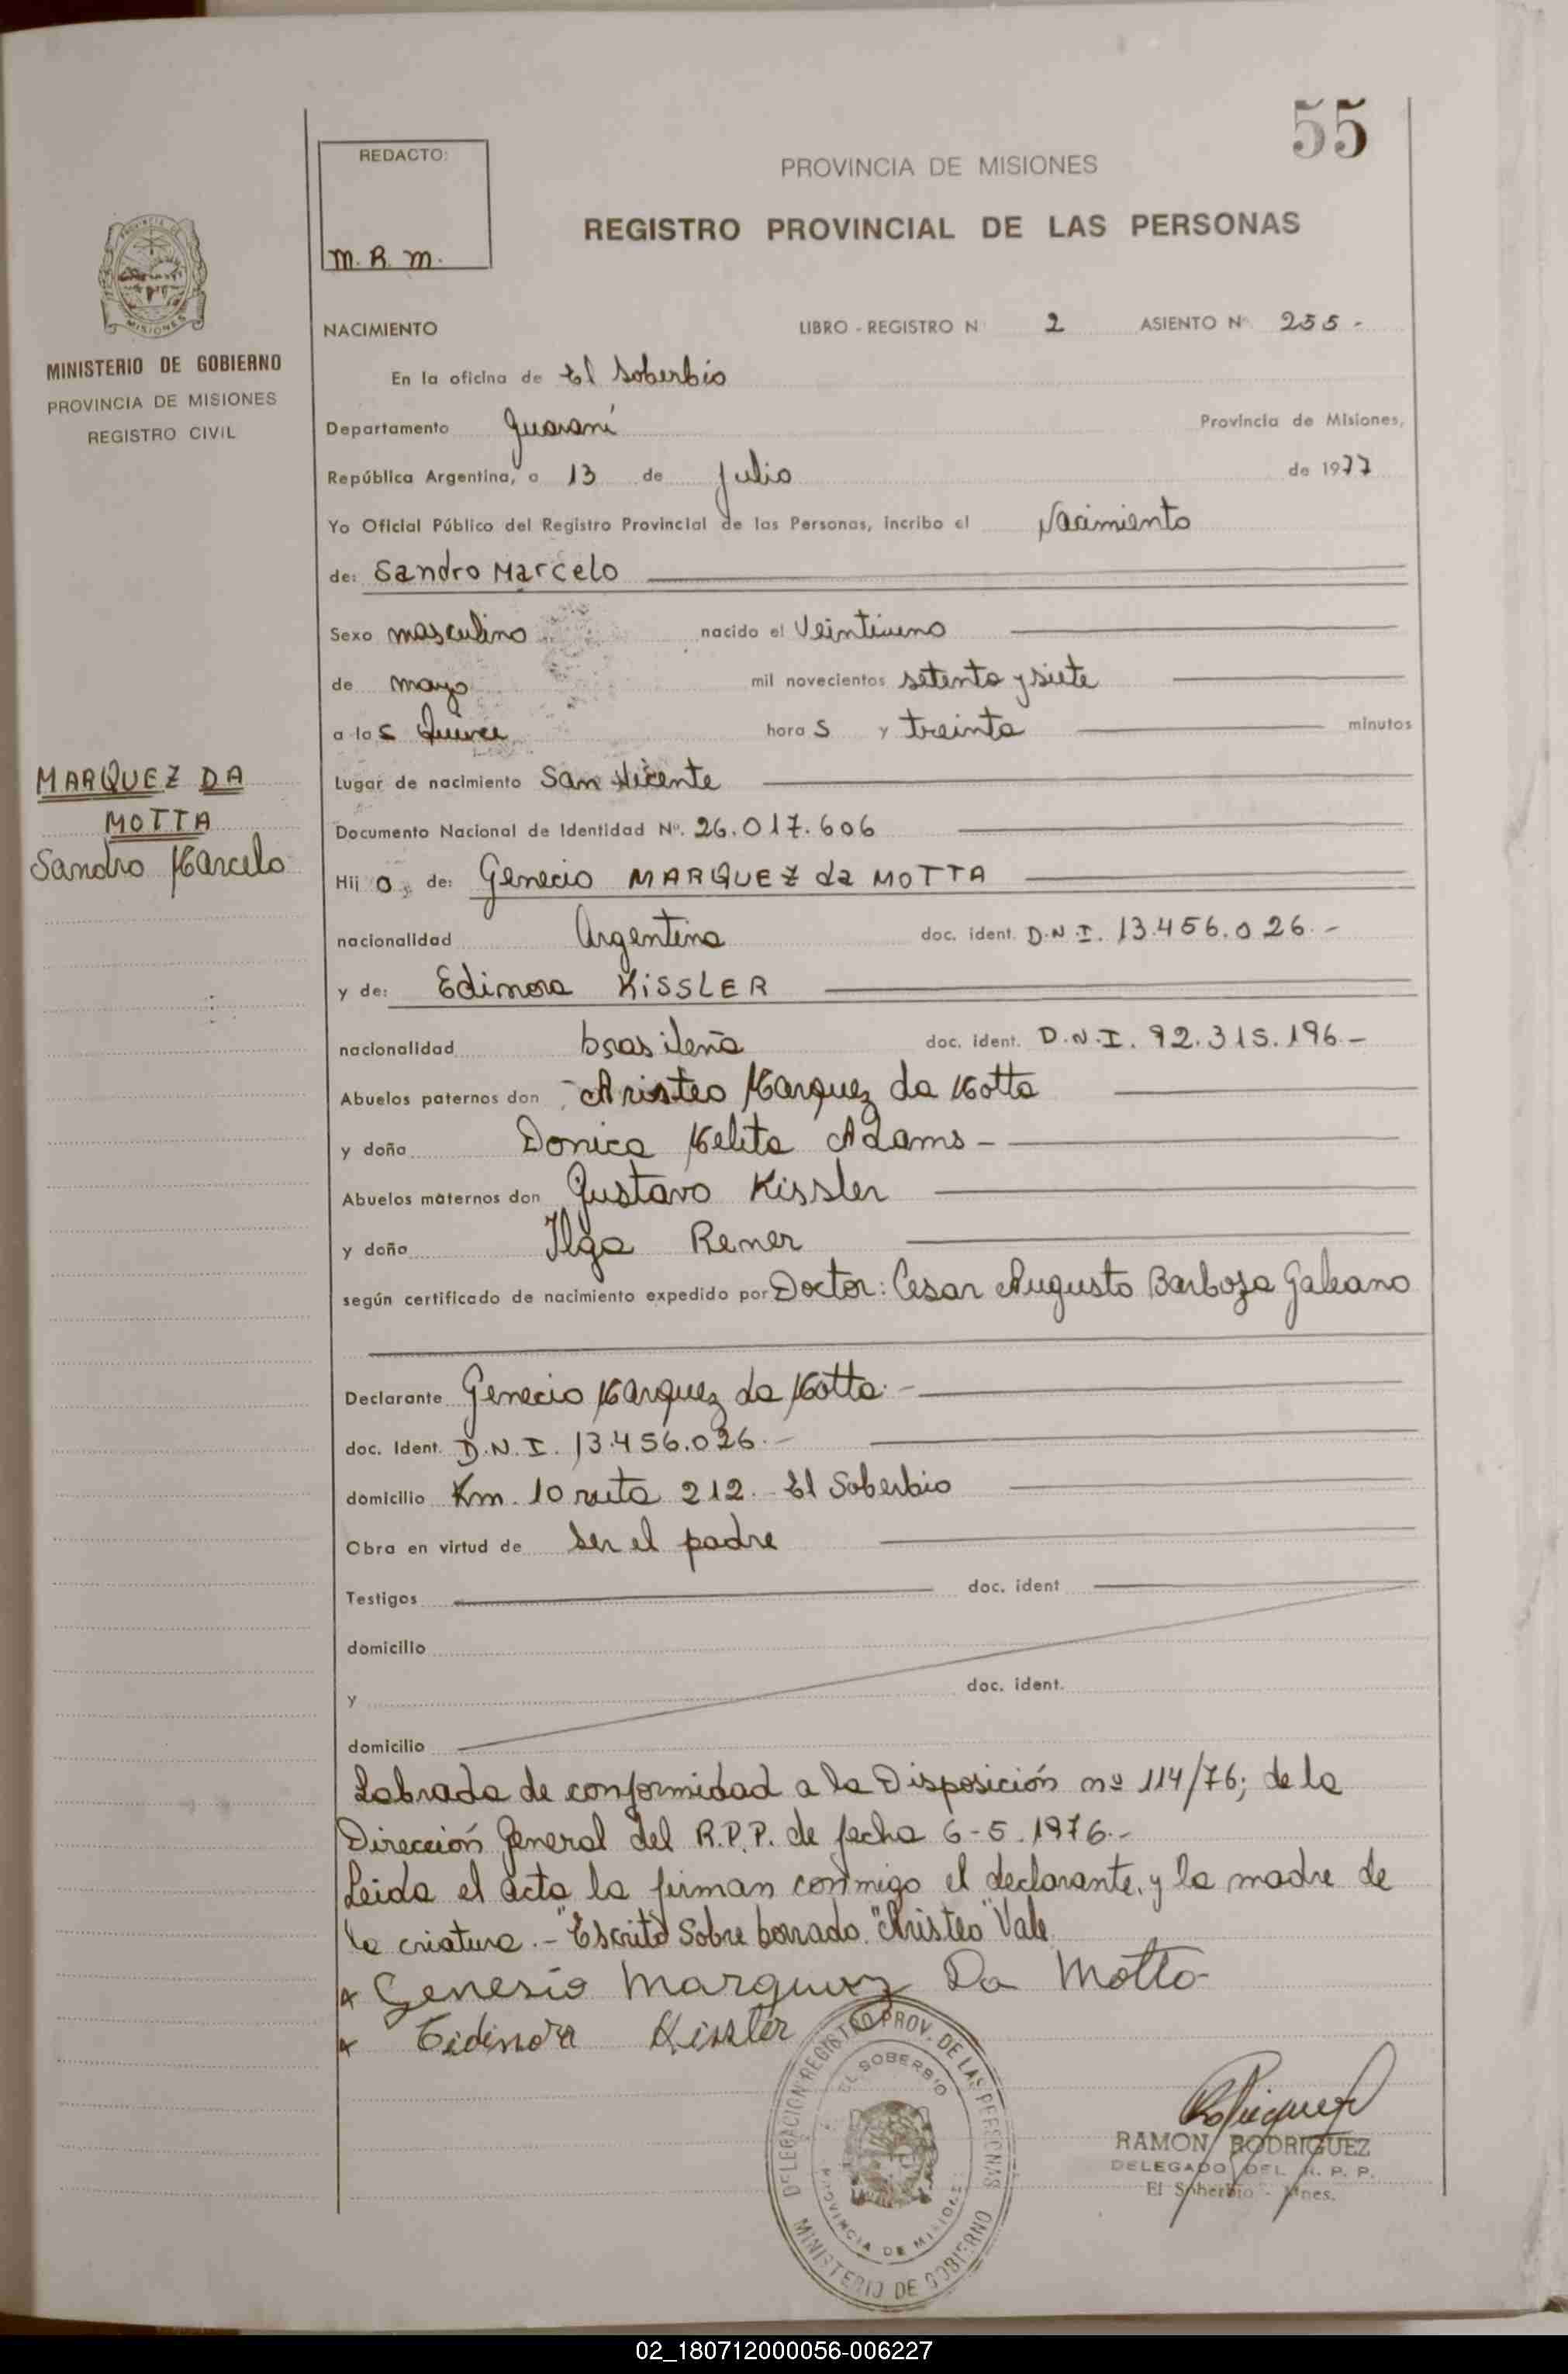 55
REDACTO:
M. R. M.
PROVINCIA DE MISIONES
REGISTRO PROVINCIAL DE LAS PERSONAS
MISIONES
MINISTERIO DE GOBIERNO
PROVINCIA DE MISIONES
REGISTRO CIVIL
NACIMIENTO LIBRO - REGISTRO N° 2 ASIENTO N° 255.-
En la oficina de El Soberbio
Departamento Guaraní Provincia de Misiones,
República Argentina, a 13 de Julio de 1977
Yo Oficial Público del Registro Provincial de las Personas, incribo el Nacimiento
de: Sandro Marcelo
Sexo masculino nacido el Veintiuno
de mayo mil novecientos setenta y siete
a las Quince horas y treinta minutos
Lugar de nacimiento San Vicente
MARQUEZ DA
MOTTA
Sandro Marcelo
Documento Nacional de Identidad N°. 26.017.606
Hijo de: Genecio MARQUEZ da MOTTA
nacionalidad Argentina doc. ident. D.N.I. 13.456.026.-
y de: Edinora KiSSLER
nacionalidad brasileña doc. ident. D.N.I. 92.315.196-
Abuelos paternos don Aristeo Marquez da Motta
y doña Donica Melita Adams-
Abuelos maternos don Gustavo Kissler
y doña Ilga Remer
según certificado de nacimiento expedido por Doctor: Cesar Augusto Barboza Galeano
Declarante Genecio Marquez da Motta.-
doc. Ident. D.N.I. 13.456.026.-
domicilio Km. 10 ruta 212.- El Soberbio
Obra en virtud de ser el padre
Testigos doc. ident
domicilio
y doc. ident.
domicilio
Labrada de conformidad a la Disposición nº 114/76; de la
Dirección General del R.P.P. de fecha 6-5-1976.-
Leida el acta la firman conmigo el declarante, y la madre de
la criatura.- "Escrito Sobre borrado "Aristeo" Vale
x Genesio Marquez Da Motta
x Eidinora Kissler
DELEGACION REGISTRO PROV. DE LAS PERSONAS
EL SOBERBIO
PROVINCIA DE MISIONES
MINISTERIO DE GOBIERNO
RAMON RODRIGUEZ
DELEGADO DEL R. P. P.
El Soberbio - Mnes.
02_180712000056-006227